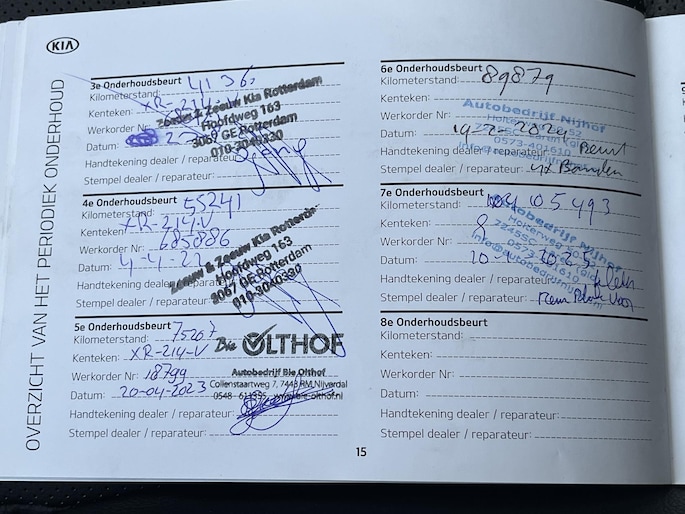 KIA
OVERZICHT VAN HET PERIODIEK ONDERHOUD
3e Onderhoudsbeurt
Kilometerstand:
Kenteken: XR-214-V
Werkorder Nr:
Datum:
Handtekening dealer / reparateur
Stempel dealer / reparateur:
Zeeuw & Zeeuw Kia Rotterdam
Hoofdweg 163
3067 GE Rotterdam
010-3040330
4e Onderhoudsbeurt
Kilometerstand: 55241
Kenteken: XR-214-V
Werkorder Nr: 685886
Datum: 4-4-22
Handtekening dealer / reparateur
Stempel dealer / reparateur:
Zeeuw & Zeeuw Kia Rotterda
Hoofdweg 163
3067 GE Rotterdam
010-3040330
5e Onderhoudsbeurt
Kilometerstand: 75207
Kenteken: XR-214-V
Werkorder Nr: 18799
Datum: 20-04-2023
Handtekening dealer / reparateur:
Stempel dealer / reparateur:
Bie OLTHOF
Autobedrijf Bie Olthof
Collenstaartweg 7, 7443 RM Nijverdal
0548
6e Onderhoudsbeurt
Kilometerstand: 89879
Kenteken:
Werkorder Nr:
Datum: 19-2-2024 Beurt
Handtekening dealer / reparateur:
Stempel dealer / reparateur: 4x Banden
Autobedrijf Nijhof
Holterweg
0573-401610
7e Onderhoudsbeurt
Kilometerstand: 105493
Kenteken:
Werkorder Nr:
Datum: 2025
Handtekening dealer / reparateur:
Stempel dealer / reparateur: Voor
Autobedrijf Nijhof
Holterweg
8e Onderhoudsbeurt
Kilometerstand:
Kenteken:
Werkorder Nr:
Datum:
Handtekening dealer / reparateur:
Stempel dealer / reparateur:
15